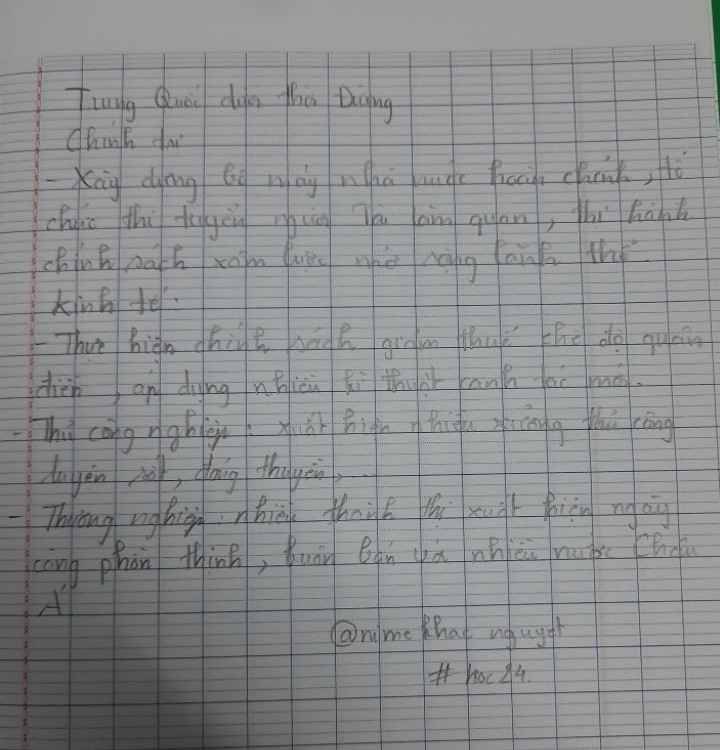 Trung Quốc dưới thời Đường
Chính trị
- Xây dựng bộ máy nhà nước hoàn chỉnh, tổ
chức thi tuyển người tài làm quan, thi hành
chính sách xâm lược mở rộng lãnh thổ.
Kinh tế:
- Thực hiện chính sách giảm thuế chế độ quân
điền, áp dụng nhiều kĩ thuật canh tác mới.
- Thủ công nghiệp: xuất hiện nhiều xưởng thủ công
luyện sắt, đóng thuyền, ...
- Thương nghiệp: nhiều thành thị xuất hiện ngày
càng phồn thịnh, buôn bán với nhiều nước Châu
Á
@nime khac nguyet
# hoc24.